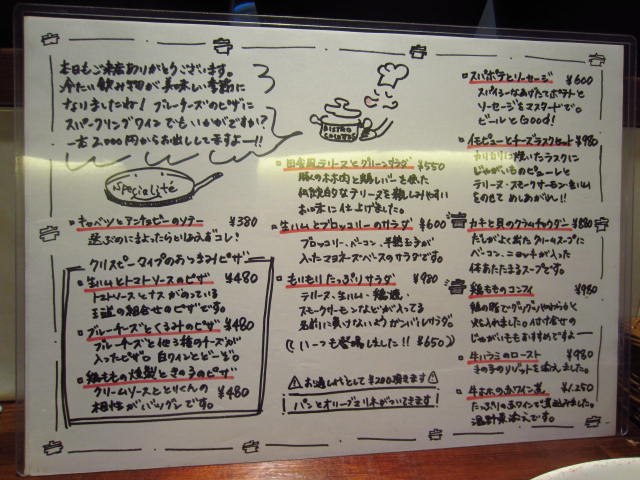 本日もご来店ありがとうございます。
冷たい飲み物が美味しい季節に
なりましたね! ブルーチーズのピザに
スパークリングワインでもいかがですか?
一本2,000円からお出ししてますよー!!
BISTRO
Spécialité
キャベツとアンチョビーのソテー ¥380
迷ったらとりあえずコレ!
クリスピータイプのあつあつピザ
生ハムとトマトソースのピザ ¥480
トマトソースとナスがのっている
王道の組合せのピザです。
ブルーチーズとくるみのピザ ¥480
ブルーチーズと他3種のチーズが
入ったピザ。白ワインとどーぞ。
鶏ももの燻製ときの子のピザ
クリームソースととりくんの ¥480
相性がバツグンです。
田舎風テリーヌとグリーンサラダ ¥550
豚のホホ肉と鶏レバーを使った
伝統的なテリーヌを親しみやすい
お味に仕上げました。
生ハムとブロッコリーのサラダ ¥600
ブロッコリー、ベーコン、半熟玉子が
入ったマヨネーズベースのサラダです。
もりもりたっぷりサラダ ¥980
テリーヌ、生ハム、鶏燻、
スモークサーモンなどが入ってる
名前に負けないようガンバレサラダ。
(ハーフも登場しました!! ¥650)
⚠お通し代として¥200頂きます⚠
パンとオリーブユリネがついてきます
スパポテとソーセージ ¥600
スパイシーなあげたてポテトと
ソーセージをマスタードで。
ビールとGOOD!
イモピューとチーズラスクセット ¥980
カリカリに焼いたラスクに
じゃがいものピューレと
テリーヌ・スモークサーモン・生ハム
をのせてめしあがれ!!
カキと貝のクラムチャウダー ¥880
だしがよく出たクリームスープに
ベーコン、ニョッキが入った
体あたたまるスープです。
鶏もものコンフィ ¥980
鶏の脂でグツグツやわらかく
火を入れました。付け合せの
じゃがいももおすすめですよー
牛ハラミのロースト ¥980
きの子のリゾットを添えました。
牛ホホの赤ワイン煮 ¥1,250
たっぷりの赤ワインで煮込みました。
温野菜添えです。